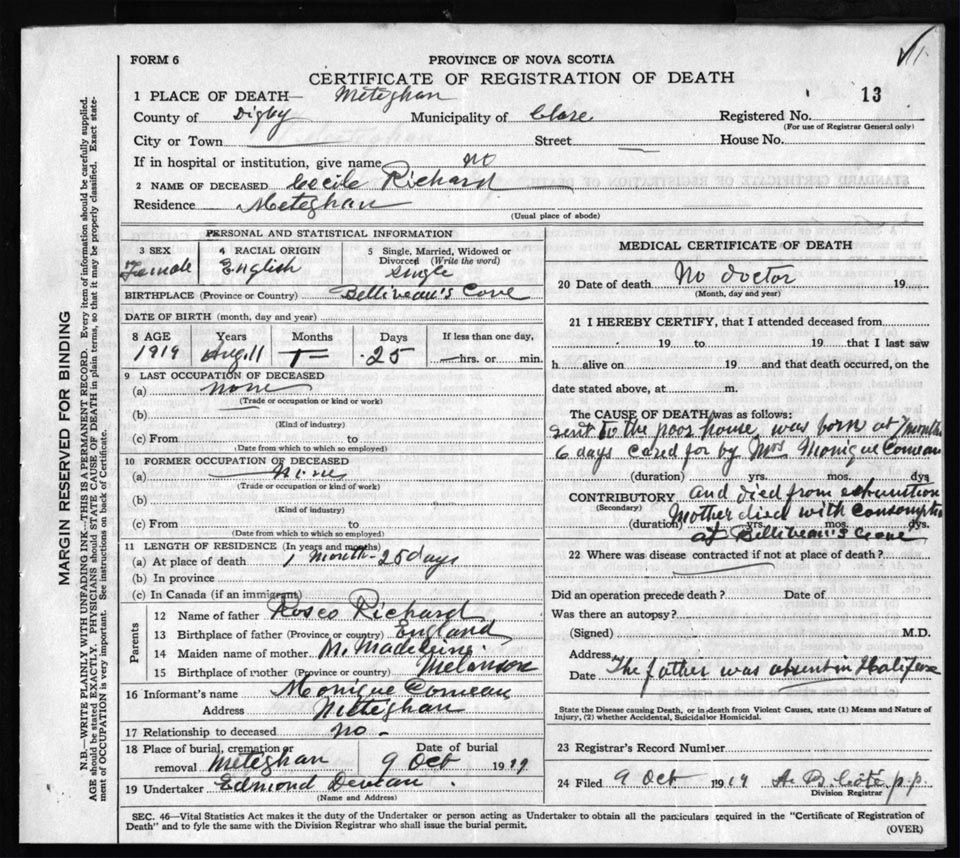 FORM 6
PROVINCE OF NOVA SCOTIA
CERTIFICATE OF REGISTRATION OF DEATH
13
1 PLACE OF DEATH— Meteghan
County of Digby Municipality of Clare Registered No.
(For use of Registrar General only)
City or Town Street House No.
If in hospital or institution, give name no
2 NAME OF DECEASED Cecile Richard
Residence Meteghan
(Usual place of abode)
PERSONAL AND STATISTICAL INFORMATION
3 SEX 4 RACIAL ORIGIN 5 Single, Married, Widowed or Divorced (Write the word)
Female English single
BIRTHPLACE (Province or Country) Belliveau's Cove
DATE OF BIRTH (month, day and year)
8 AGE Years Months Days If less than one day,
1919 Aug 11 1 25 hrs. or min.
9 LAST OCCUPATION OF DECEASED
(a) none
(Trade or occupation or kind or work)
(b)
(Kind of industry)
(c) From to
(Date from which to which so employed)
10 FORMER OCCUPATION OF DECEASED
(a) None
(Trade or occupation or kind of work)
(b)
(Kind of industry)
(c) From to
(Date from which to which so employed)
11 LENGTH OF RESIDENCE (In years and months)
(a) At place of death 1 Month - 25 days
(b) In province
(c) In Canada (if an immigrant)
Parents
12 Name of father Rosco Richard
13 Birthplace of father (Province or country) England
14 Maiden name of mother M. Madeleine
15 Birthplace of mother (Province or country) Melanson
16 Informant's name Monique Comeau
Address Meteghan
17 Relationship to deceased no -
18 Place of burial, cremation or removal Meteghan Date of burial 9 Oct 1919
19 Undertaker Edmond Deveau
(Name and Address)
MEDICAL CERTIFICATE OF DEATH
20 Date of death No doctor 19
(Month, day and year)
21 I HEREBY CERTIFY, that I attended deceased from
19 to 19 that I last saw
h alive on 19 and that death occurred, on the
date stated above, at m.
The CAUSE OF DEATH was as follows:
sent to the poor house was born at 7 months
6 days cared for by Mrs Monique Comeau
(duration) yrs. mos. dys
CONTRIBUTORY and died from
(Secondary)
Mother died with consumption
(duration) yrs. mos. dys.
at Belliveau's Cove
22 Where was disease contracted if not at place of death?
Did an operation precede death? Date of
Was there an autopsy?
(Signed) M.D.
Address
Date The father was absent in Halifax
State the Disease causing Death, or in death from Violent Causes, state (1) Means and Nature of
Injury, (2) whether Accidental, Suicidal or Homicidal.
23 Registrar's Record Number
24 Filed 9 Oct 1919 A. B. Côté p.p.
Division Registrar
SEC. 46—Vital Statistics Act makes it the duty of the Undertaker or person acting as Undertaker to obtain all the particulars required in the "Certificate of Registration of
Death" and to fyle the same with the Division Registrar who shall issue the burial permit.
(OVER)
MARGIN RESERVED FOR BINDING
N.B.—WRITE PLAINLY WITH UNFADING INK—THIS IS A PERMANENT RECORD. Every item of information should be carefully supplied.
AGE should be stated EXACTLY. PHYSICIANS should STATE CAUSE OF DEATH in plain terms, so that it may be properly classified. Exact state-
ment of OCCUPATION is very important. See instructions on back of Certificate.